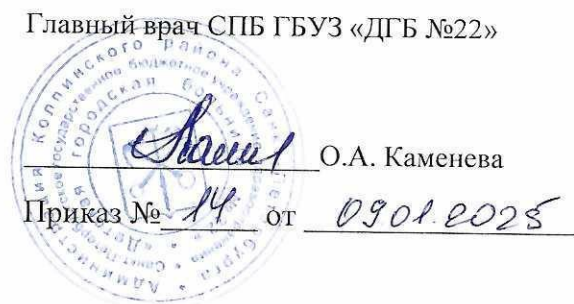 Главный врач СПБ ГБУЗ «ДГБ №22»
О.А. Каменева
Приказ № 14 от 09.01.2025